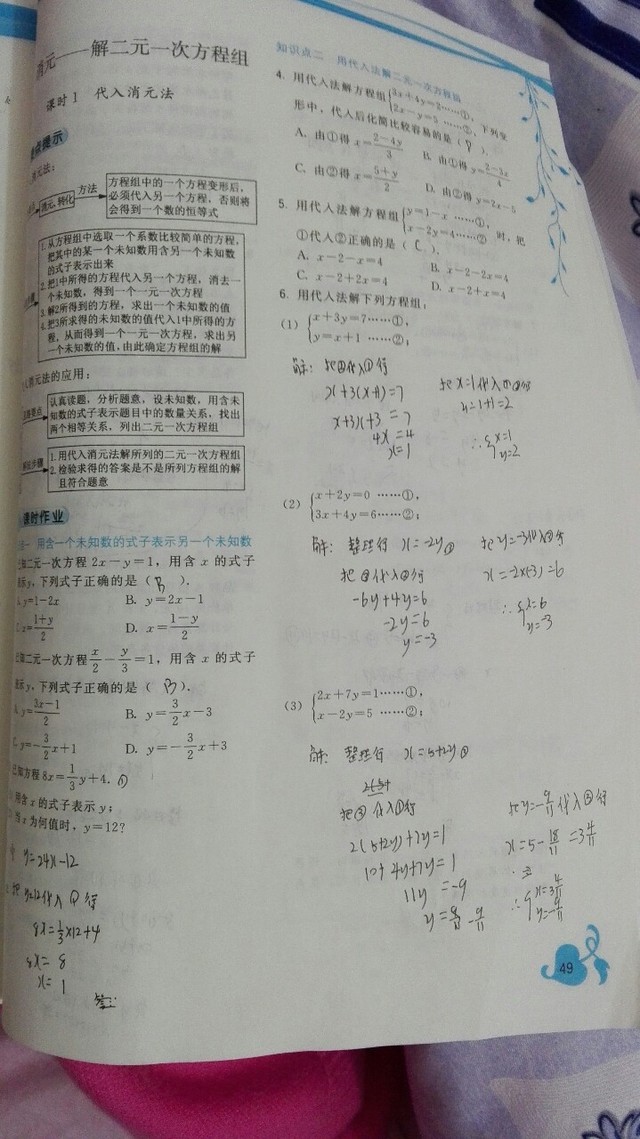 消元——解二元一次方程组
课时1 代入消元法
消元、转化
方法
方程组中的一个方程变形后,
必须代入另一个方程,否则将
会得到一个数的恒等式
1.从方程组中选取一个系数比较简单的方程,
把其中的某一个未知数用含另一个未知数
的式子表示出来
2.把1中所得的方程代入另一个方程,消去一
个未知数,得到一个一元一次方程
3.解2所得到的方程,求出一个未知数的值
4.把3所求得的未知数的值代入1中所得的方
程,从而得到一个一元一次方程,求出另
一个未知数的值,由此确定方程组的解
消元法的应用:
认真读题,分析题意,设未知数,用含未
知数的式子表示题目中的数量关系,找出
两个相等关系,列出二元一次方程组
1.用代入消元法解所列的二元一次方程组
2.检验求得的答案是不是所列方程组的解
且符合题意
课时作业
用含一个未知数的式子表示另一个未知数
已知二元一次方程2x-y=1,用含x的式子
表示y,下列式子正确的是( B ).
A. y=1-2x B. y=2x-1
C. x=(1+y)/2 D. x=(1-y)/2
已知二元一次方程x/2-y/3=1,用含x的式子
表示y,下列式子正确的是( B ).
A. y=(3x-1)/2 B. y=3/2x-3
C. y=-3/2x+1 D. y=-3/2x+3
已知方程8x=1/3y+4. ①
用含x的式子表示y;
当x为何值时,y=12?
y=24x-12
把y=12代入①得
8x=1/3×12+4
8x=8
x=1
答:
知识点二 用代入法解二元一次方程组
4. 用代入法解方程组{3x+4y=2……①, 2x-y=5 ……②, 下列变
形中,代入后化简比较容易的是( D ).
A. 由①得x=(2-4y)/3 B. 由①得y=(2-3x)/4
C. 由②得x=(5+y)/2 D. 由②得y=2x-5
5. 用代入法解方程组{y=1-x ……①, x-2y=4……② 时,把
①代入②正确的是( C ).
A. x-2-x=4 B. x-2-2x=4
C. x-2+2x=4 D. x-2+x=4
6. 用代入法解下列方程组:
(1) {x+3y=7……①, y=x+1 ……②;
解: 把②代入①得
x+3(x+1)=7
x+3x+3=7
4x=4
x=1
把x=1代入②得
y=1+1=2
∴{x=1 y=2
(2) {x+2y=0 ……①, 3x+4y=6……②;
解: 整理得 x=-2y③
把③代入②得
-6y+4y=6
-2y=6
y=-3
把y=-3代入③得
x=-2×(-3)=6
∴{x=6 y=-3
(3) {2x+7y=1……①, x-2y=5 ……②;
解: 整理得 x=5+2y③
把③代入①得
2(5+2y)+7y=1
10+4y+7y=1
11y=-9
y=-9/11
把y=-9/11代入③得
x=5-18/11=3 4/11
∴{x=3 4/11 y=-9/11
49